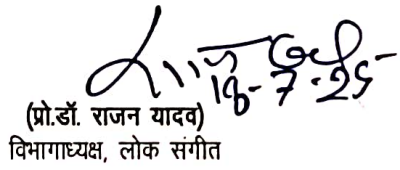 18-7-25
(प्रो.डॉ. राजन यादव)
विभागाध्यक्ष, लोक संगीत